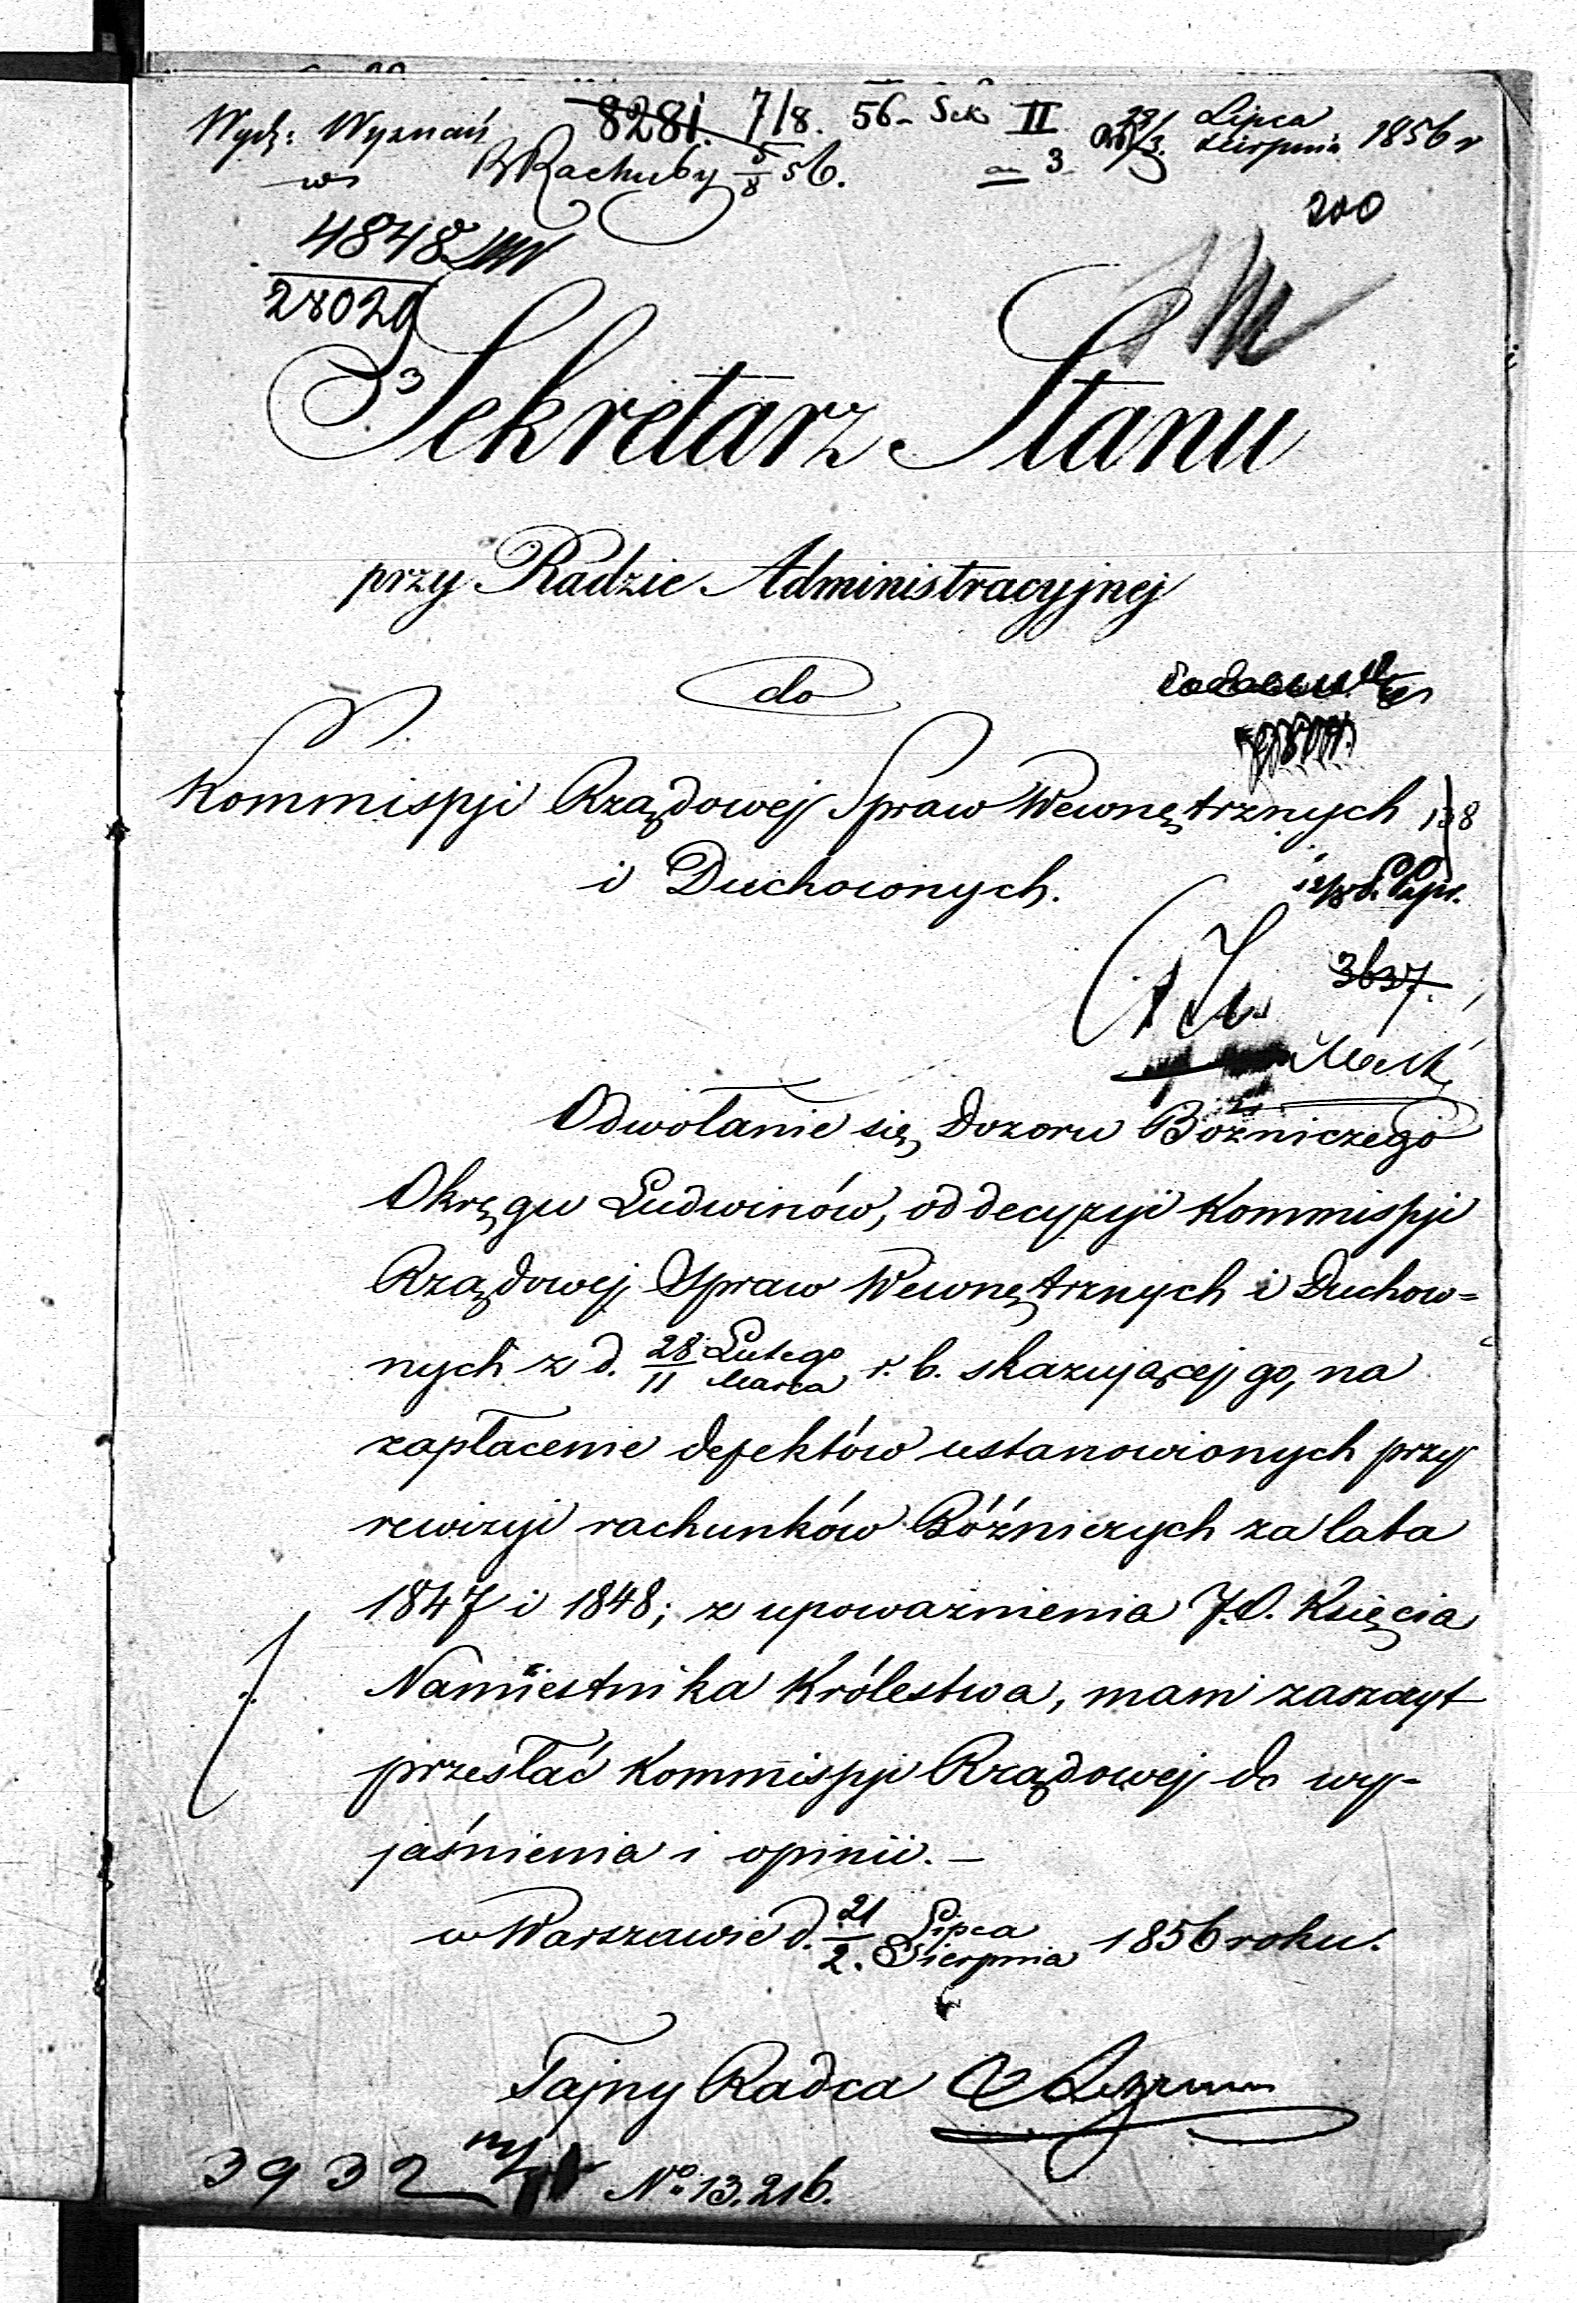 Wydz: Wyznań 8281. 7/8. 56 - Sek II 22/3. Lipca Sierpnia 1856 r
w Rachuby 5/8 56. 3
200
4848
28029
Sekretarz Stanu
przy Radzie Administracyjnej
do
Kommissyi Rządowej Spraw Wewnętrznych
i Duchownych.
3637.
Odwołanie się Dozoru Bóżniczego
Okręgu Ludwinów, od decyzyi Kommissyi
Rządowej Spraw Wewnętrznych i Duchow=
nych z d. 28 Lutego / 11 Marca r. b. skazującej go, na
zapłacenie defektów ustanowionych przy
rewizyi rachunków Bóźniczych za lata
1847 i 1848; z upoważnienia J.O. Księcia
Namiestnika Królestwa, mam zaszczyt
przesłać Kommissyi Rządowej do wy-
jaśnienia i opinii. -
w Warszawie d. 21 Lipca / 2. Sierpnia 1856 roku.
Tajny Radca
3932 No 13.216.